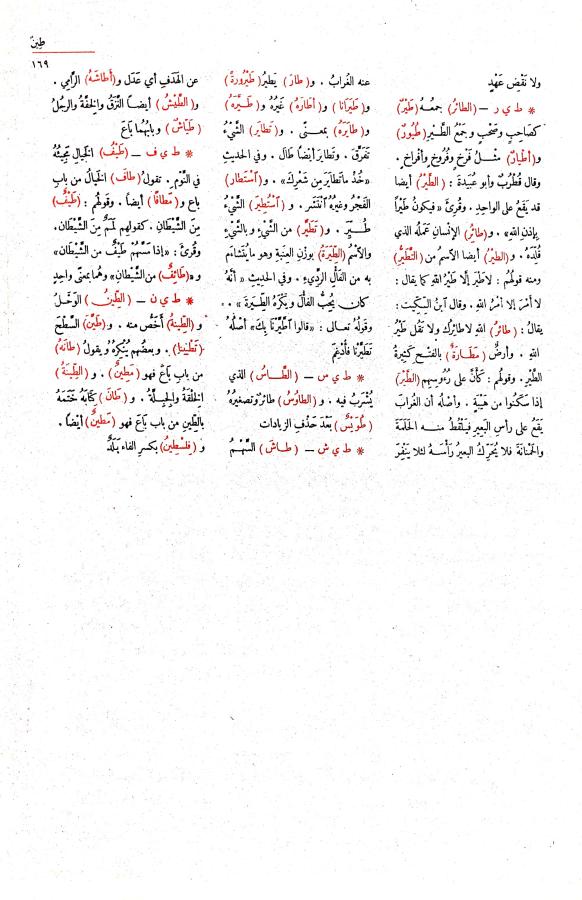 طين
١٦٩
ولا نَقْض عَهْدٍ
* ط ي ر – (الطائرُ) جمعُـهُ (طَيْرٌ)
كصَاحِبٍ وصَحْبٍ وجَمْعُ الطَّيْرِ (طُيُورٌ)
و(أَطْيَارٌ) مثْـلُ فَرْخٍ وفُرُوخٍ وأَفْراخٍ .
وقال قُطْرُبٌ وأبو عُبَيْدَة : (الطَّيْرُ) أيضا
قد يَقَعُ على الواحِدِ . وقُرِئَ «فيكونُ طَيْرًا
بإذنِ الله» . و(طائِرُ) الإنسانِ عَمَلُهُ الذي
قُلِّدَهُ . و(الطَّيْرُ) أيضا الاسمُ من (التَّطَيُّرِ)
ومنه قولُهُمْ : لا طَيْرَ إلا طَيْرُ اللهِ كما يقال :
لا أَمْرَ إلا أَمْرُ اللهِ . وقال آبنُ السِّكِّيت :
يقالُ : (طائِرُ) اللهِ لا طائِرُك ولا تَقُل طَيْرُ
اللهِ . وأرضٌ (مَطَارَةٌ) بالفتْـح كَثِيرَةُ
الطَّيْرِ . وقولُهُم : كأنَّ على رُءُوسِهِمُ (الطَّيْرَ)
إذا سَكَنُوا من هَيْبَةٍ . وأصْلُه أن الغُرابَ
يَقَعُ على رأسِ البَعِيرِ فيَلْقُطُ منـه الحَلَمَةَ
والحَمْنانَةَ فلا يُحَرِّكُ البعيرُ رَأْسَهُ لئلا يَنْفِرَ
عنه الغُرابُ . و(طارَ) يَطِيرُ (طَيْرُورَةً)
و(طَيَرَانا) و(أطارَهُ) غَيْرُهُ و(طَيَّرَهُ)
و(طايَرَهُ) بمعنًى . و(تَطايَرَ) الشَّيْءُ
تَفَرَّقَ . وتَطايَر أيضًا طالَ . وفي الحديثِ
«خُذْ ما تَطايَرَ من شَعْرِكَ» . و(آسْتَطارَ)
الفَجْرُ وغيرُهُ آنْتَشَر . و(آسْتُطِيرَ) الشَّيْءُ
طُـيِّـرَ . و(تَطَيَّرَ) من الشَّيْءِ وبالشَّيْءِ
والاسْمُ (الطِّيَرَةُ) بوزْنِ العِنَبَةِ وهو ما يُتَشَاءَمُ
به من الفَأْلِ الرَّدِيءِ . وفي الحديثِ « أنَّهُ
كان يُحِبُّ الفَأْلَ ويَكْرَهُ الطِّـيَرَةَ » .
وقولُه تعالى : «قالوا آطَّيَّرْنا بِكَ» أصْلُهُ
تَطَيَّرْنا فأُدْغِمَ
* ط ي س – (الطَّـاسُ) الذي
يُشْرَبُ فيه . و(الطاوُسُ) طائرٌ وتَصْغِيرُهُ
(طُوَيْسٌ) بَعْدَ حَذْفِ الزيادات
* ط ي ش – (طـاشَ) السَّهْـمُ
عن الهَدَفِ أي عَدَل و(أَطَاشَهُ) الرَّامِي .
و(الطَّيْشُ) أيضًا النَّزَقُ والخِفَّةُ والرجُلُ
(طَيَّاشٌ) وبابُهُما باعَ
* ط ي ف – (طَيْفُ) الخيالِ مَجِيئُهُ
في النَّوْمِ . تقولُ (طافَ) الخيالُ من بابِ
باع و(مَطَافًا) أيضًا . وقولُهُم : (طَيْفٌ)
مِنَ الشَّيْطَانِ . كقولِهم لَمَمٌ مِنَ الشَّيْطان.
وقُرِئَ : «إذا مَسَّهُمْ طَيْفٌ من الشَّيْطَانِ»
و«(طائِفٌ) من الشَّيْطانِ» وهُما بمعنًى واحدٍ
* ط ي ن – (الطِّينُ) الوَحْلُ
و(الطِّينَةُ) أَخَصُّ منه . و(طَيَّنَ) السَّطْحَ
(تَطْيِينا) . وبعضُهم يُنْكِرُه ويقولُ (طانَهُ)
من باب باعَ فهو (مَطِينٌ) . و(الطِّينَةُ)
الخِلْقَةُ والجِبِلَّةُ . و(طانَ) كِتابَهُ خَتَمَهُ
بالطِّينِ من باب باعَ فهو (مَطِينٌ) أيضًا .
و(فِلَسْطِينُ) بكسرِ الفاءِ بَلَدٌ